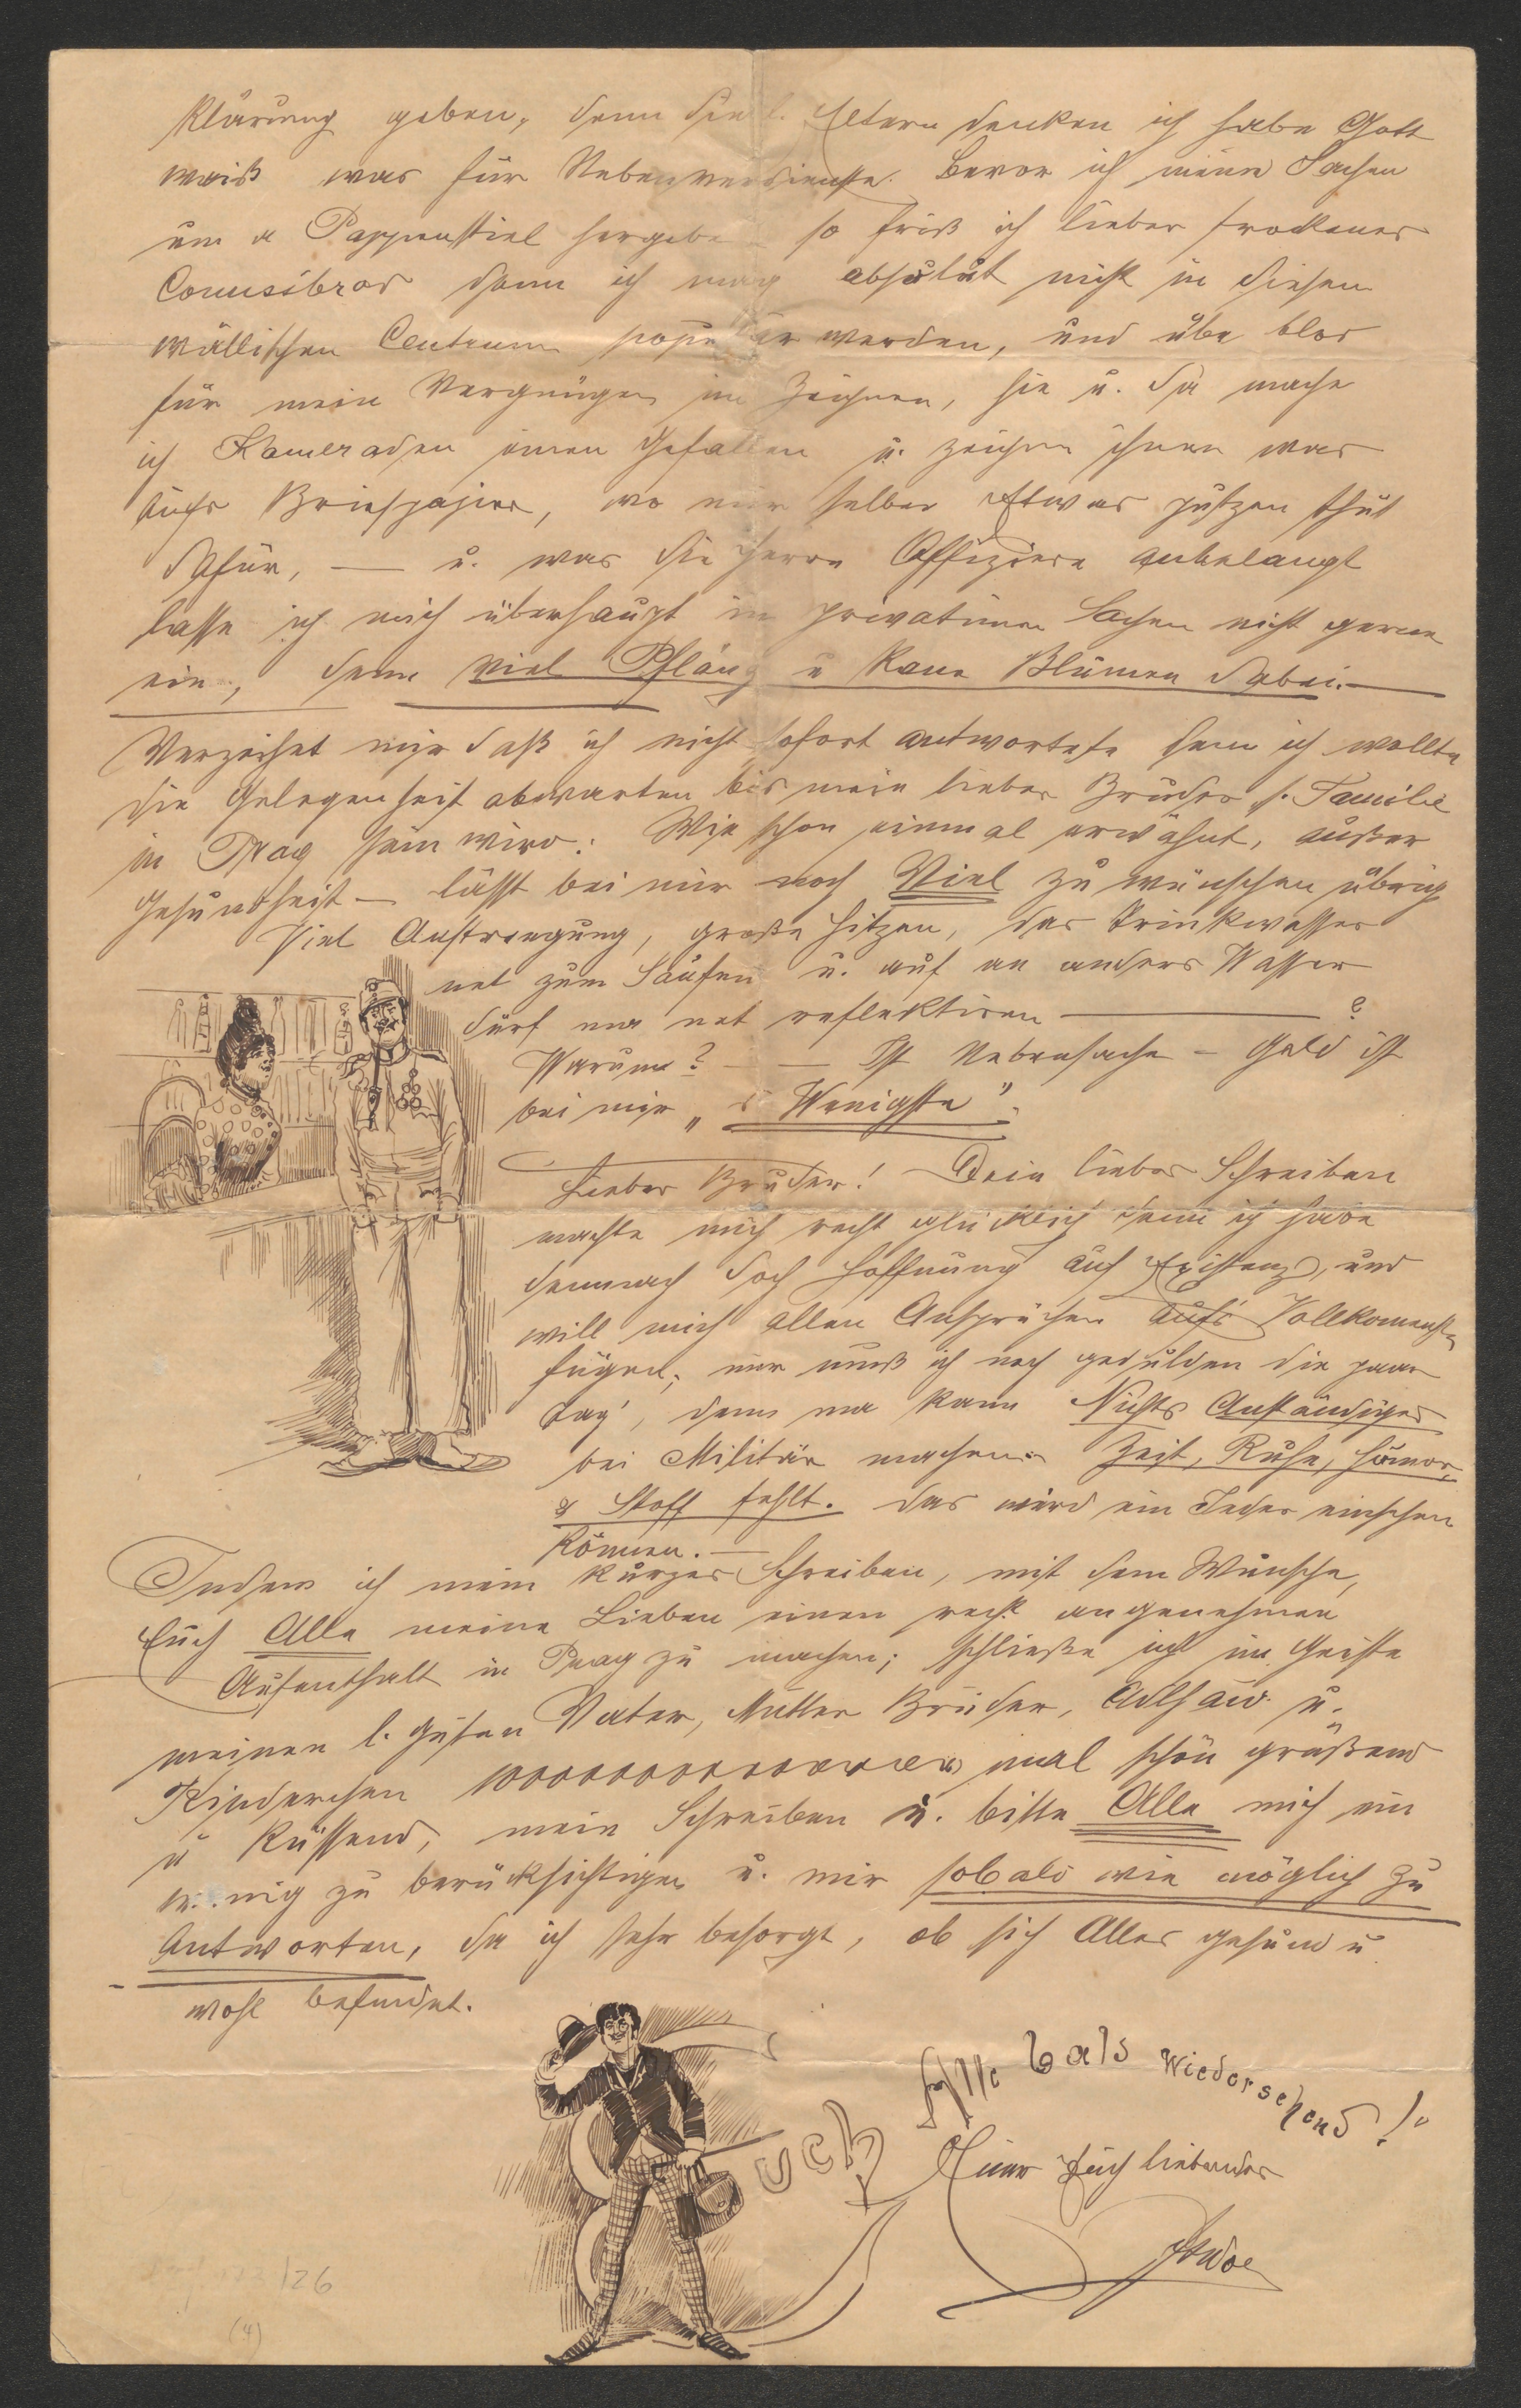 klärung geben, denn die l. Eltern denken ich habe Gott
weiß was für Nebenverdienste. Bevor ich meine Sachen
um a Pappenstiel hergebe so friß ich lieber trockenes
Comisbrod denn ich mag absulut nicht in diesem
wällischen Centrum populär werden, und übe blos
für mein Vergnügen im Zeichnen, hie u. da mache
ich Kameraden einen Gefallen u. zeichne ihnen was
aufs Briefpapier, wo mir selber Etwas putzen thut
dafür, — u. was die Herrn Offiziere anbelangt
lasse ich mich überhaupt in privatimen Sachen nicht gerne
ein, denn viel Pflanz u kane Blumen dabei. —
Verzeihet mir daß ich nicht sofort antwortete denn ich wollte
die Gelegenheit abwarten bis mein lieber Bruder s. Familie
in Prag sein wird. Wie schon einmal erwähnt, außer
Gesundheit — lässt bei mir noch Viel zu wünschen übrig
Viel Anstrengung, große Hitzen, das Trinkwasser
net zum Saufen u. auf an anders Wasser
derf ma net reflektiren — ?
Warum? — — Ist Nebensache — Geld ist
bei mir „s Wenigste".
Lieber Bruder! Dein liebes Schreiben
machte mich recht glücklich denn ich habe
demnach doch Hoffnung auf Existenz, und
will mich allen Ansprüchen aufs Vollkomenste
fügen; nur muß ich noch gedulden die paar
Tag', denn ma kann Nichts Anständiges
bei Militär machen. Zeit, Ruhe, Humor,
& Stoff fehlt. das wird ein Jeder einsehen
können. —
Indem ich mein kurzes Schreiben, mit dem Wunsche,
Euch Alle meine Lieben einen recht angenehmen
Aufenthalt in Prag zu machen; schließe ich im Geiste
meinen l. guten Vater, Mutter Brüder, u.
Kinderchen mal schön grüßend
u küssend, mein Schreiben u. bitte Alle mich ein
wenig zu berücksichtigen u. mir sobald wie möglich zu
Antworten, da ich sehr besorgt, ob sich Alles gesund u
wohl befindet.
Euch Alle bald Wiedersehend!
Euer Euch liebender
/26
(4)